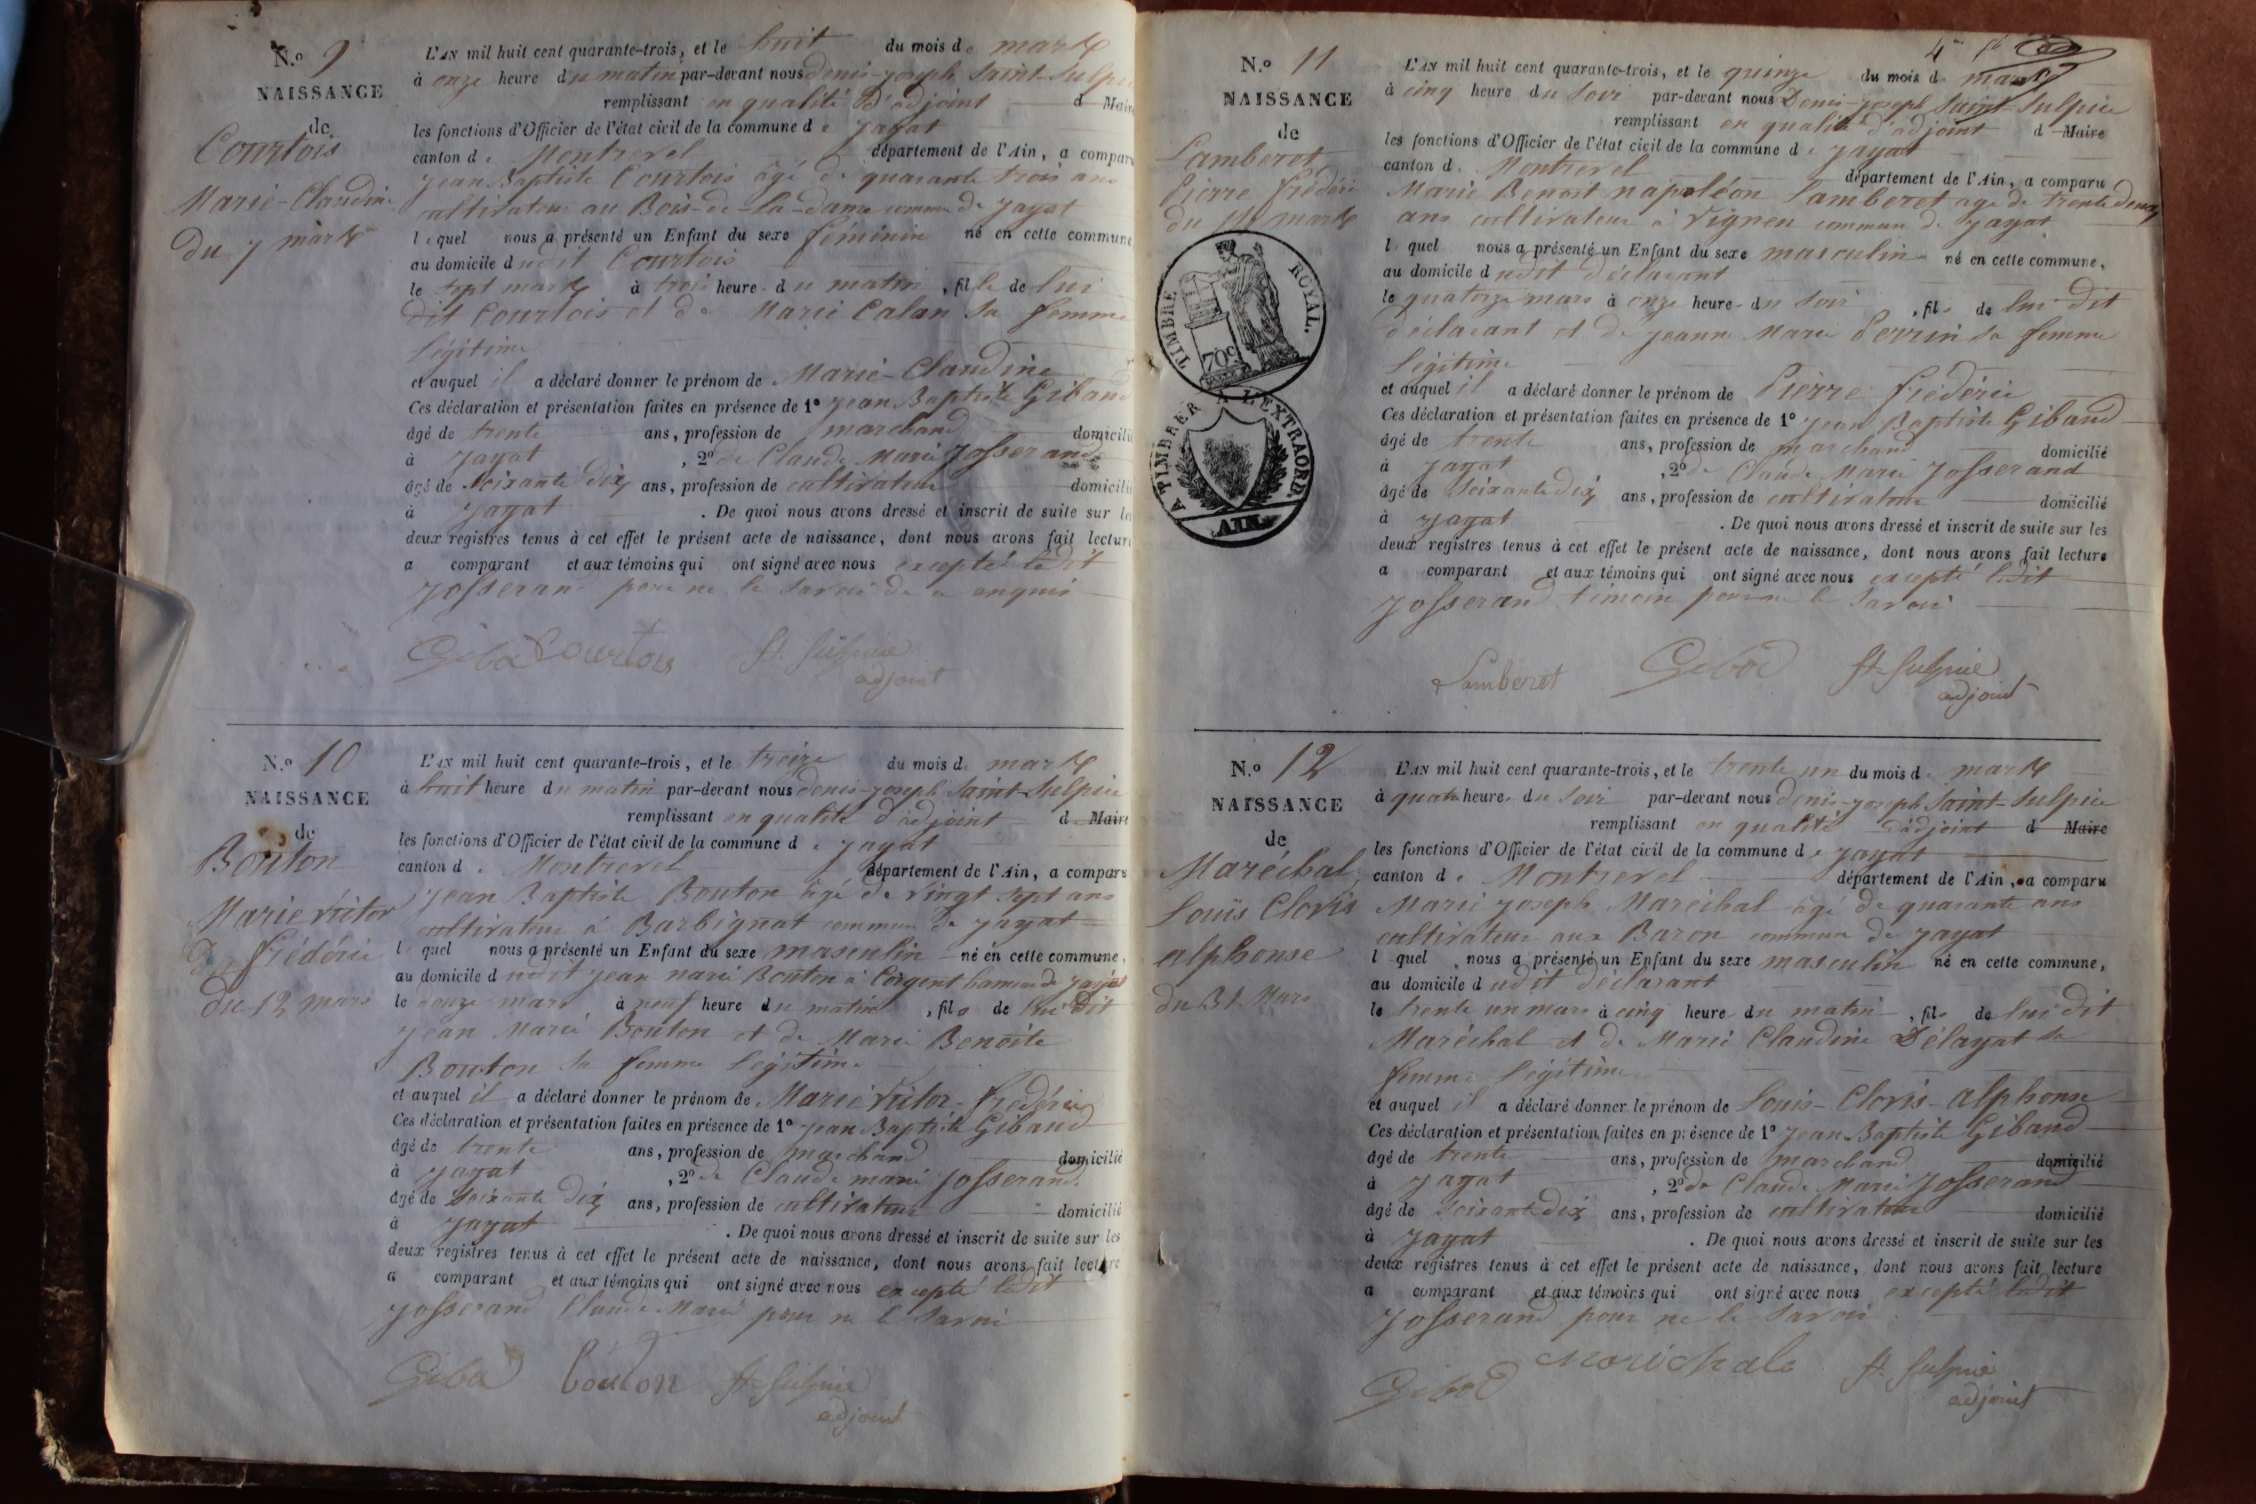 N.º 9
NAISSANCE
de
Courtois
Marie-Claudine
du 7 mars
L'AN mil huit cent quarante-trois, et le huit du mois de mars
à onze heure du matin par-devant nous denis-joseph Saint-Sulpice
remplissant en qualité d'adjoint d Maire
les fonctions d'Officier de l'état civil de la commune de jayat
canton de Montrevel département de l'Ain, a comparu
jean Baptiste Courtois agé de quarante trois ans
cultivateur au Bois-de-la-dame commune de jayat
lequel nous a présenté un Enfant du sexe féminin né en cette commune
au domicile dudit Courtois
le sept mars à trois heure du matin, fille de lui
dit Courtois et de Marie Calan sa femme
légitime
et auquel il a déclaré donner le prénom de Marie-Claudine
Ces déclaration et présentation faites en présence de 1º jean Baptiste Giband
âgé de trente ans, profession de marchand domicilié
à jayat, 2º de Claude Marie josserand
âgé de soixante dix ans, profession de cultivateur domicilié
à jayat. De quoi nous avons dressé et inscrit de suite sur les
deux registres tenus à cet effet le présent acte de naissance, dont nous avons fait lecture
a comparant et aux témoins qui ont signé avec nous excepté ledit
josserand pour ne le savoir de ce enquis
Giba Courtois St. Sulpice
adjoint
N.º 10
NAISSANCE
de
Bouton
Marie victor
frédéric
du 12 mars
L'AN mil huit cent quarante-trois, et le treize du mois de mars
à huit heure du matin par-devant nous denis-joseph Saint-Sulpice
remplissant en qualité d'adjoint d Maire
les fonctions d'Officier de l'état civil de la commune de jayat
canton de Montrevel département de l'Ain, a comparu
jean Baptiste Bouton agé de vingt sept ans
cultivateur à Barbignat commune de jayat
lequel nous a présenté un Enfant du sexe masculin né en cette commune,
au domicile dudit jean marie Bouton à Corgent hameau de jayat
le douze mars à neuf heure du matin, fils de lui dit
jean Marie Bouton et de Marie Benoite
Bouton sa femme légitime
et auquel il a déclaré donner le prénom de Marie victor-frédéric
Ces déclaration et présentation faites en présence de 1º jean Baptiste Giband
âgé de trente ans, profession de marchand domicilié
à jayat, 2º de Claude marie josserand
âgé de soixante dix ans, profession de cultivateur domicilié
à jayat. De quoi nous avons dressé et inscrit de suite sur les
deux registres tenus à cet effet le présent acte de naissance, dont nous avons fait lecture
a comparant et aux témoins qui ont signé avec nous excepté ledit
josserand Claude Marie pour ne le savoir
Giba bouton St Sulpice
adjoint
4
N.º 11
NAISSANCE
de
Lamberet
Pierre frédéric
du 14 mars
TIMBRE ROYAL.
70 c
A TIMBRER A L'EXTRAORD.
AIN
L'AN mil huit cent quarante-trois, et le quinze du mois de mars
à cinq heure du soir par-devant nous Denis-joseph Saint-Sulpice
remplissant en qualité d'adjoint d Maire
les fonctions d'Officier de l'état civil de la commune de jayat
canton de Montrevel département de l'Ain, a comparu
Marie Benoit napoléon Lamberet agé de trente deux
ans cultivateur à vigneu commune de jayat
lequel nous a présenté un Enfant du sexe masculin né en cette commune,
au domicile dudit déclarant
le quatorze mars à onze heure du soir, fils de lui dit
déclarant et de jeanne Marie Perrin sa femme
légitime
et auquel il a déclaré donner le prénom de Pierre frédéric
Ces déclaration et présentation faites en présence de 1º jean Baptiste Giband
âgé de trente ans, profession de marchand domicilié
à jayat, 2º de Claude Marie josserand
âgé de soixante dix ans, profession de cultivateur domicilié
à jayat. De quoi nous avons dressé et inscrit de suite sur les
deux registres tenus à cet effet le présent acte de naissance, dont nous avons fait lecture
a comparant et aux témoins qui ont signé avec nous excepté ledit
josserand témoin pour ne le savoir
Lamberet Gibod St Sulpice
adjoint
N.º 12
NAISSANCE
de
Maréchal
Louis Clovis
alphonse
du 31 Mars
L'AN mil huit cent quarante-trois, et le trente un du mois de mars
à quatre heures du soir par-devant nous denis-joseph Saint-Sulpice
remplissant en qualité d'adjoint d Maire
les fonctions d'Officier de l'état civil de la commune de jayat
canton de Montrevel département de l'Ain, a comparu
Marie joseph Maréchal agé de quarante ans
cultivateur aux Baron commune de jayat
lequel nous a présenté un Enfant du sexe masculin né en cette commune,
au domicile dudit déclarant
le trente un mars à cinq heure du matin, fils de lui dit
Maréchal et de Marie Claudine Délayat sa
femme légitime
et auquel il a déclaré donner le prénom de Louis-Clovis-alphonse
Ces déclaration et présentation faites en présence de 1º jean Baptiste Giband
âgé de trente ans, profession de marchand domicilié
à jayat, 2º de Claude Marie josserand
âgé de soixante dix ans, profession de cultivateur domicilié
à jayat. De quoi nous avons dressé et inscrit de suite sur les
deux registres tenus à cet effet le présent acte de naissance, dont nous avons fait lecture
a comparant et aux témoins qui ont signé avec nous excepté ledit
josserand pour ne le savoir
Gibod Marichale St Sulpice
adjoint